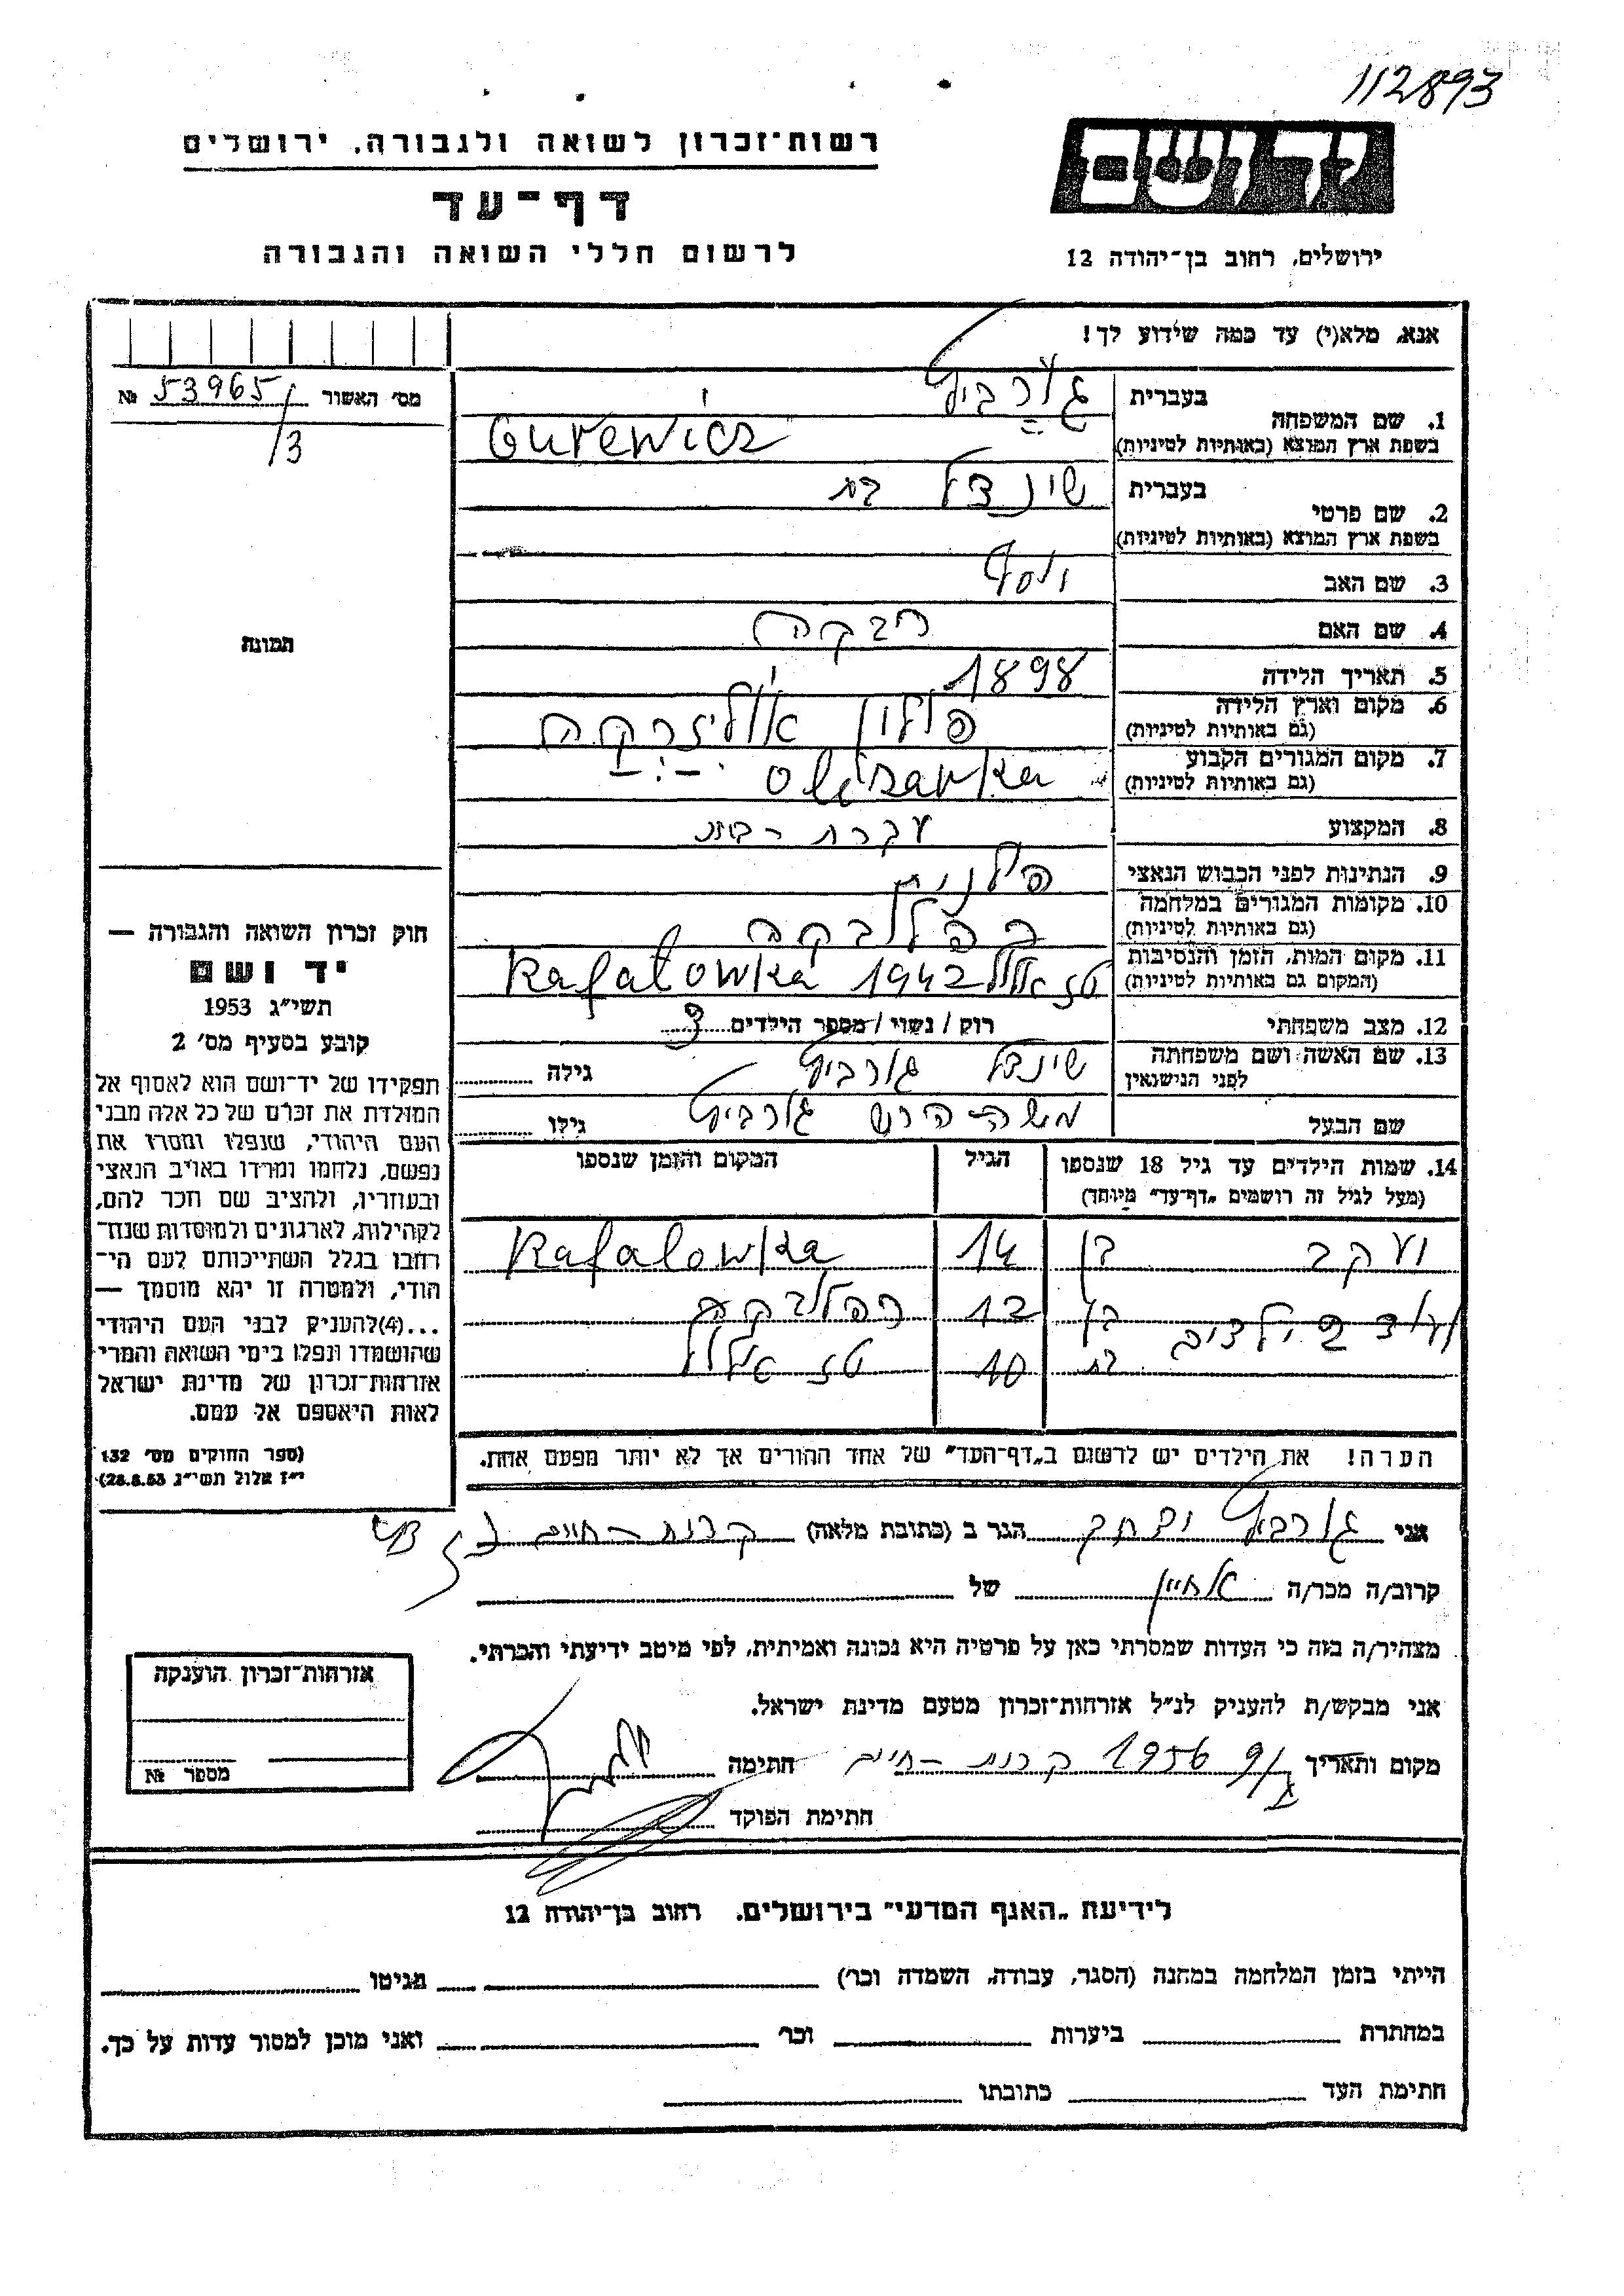 112893
יד ושם
ירושלים, רחוב בן־יהודה 12
רשות־זכרון לשואה ולגבורה, ירושלים
דף־עד
לרשום חללי השואה והגבורה
אנא, מלא(י) עד כמה שידוע לך!
מס׳ האשור 53965/3 №
תמונה
חוק זכרון השואה והגבורה —
יד ושם
תשי״ג 1953
קובע בסעיף מס׳ 2
תפקידו של יד־ושם הוא לאסוף אל
המולדת את זכרם של כל אלה מבני
העם היהודי, שנפלו ומסרו את
נפשם, נלחמו ומרדו באויב הנאצי
ובעוזריו, ולהציב שם וזכר להם,
לקהילות, לארגונים ולמוסדות שנח־
רחבו בגלל השתייכותם לעם הי־
הודי, ולמטרה זו יהא מוסמך —
...(4) להעניק לבני העם היהודי
שהושמדו ונפלו בימי השואה והמרי
אזרחות־זכרון של מדינת ישראל
לאות היאספם אל עמם.
(ספר החוקים מס׳ 132
י״ז אלול תשי״ג 28.8.53)
1. שם המשפחה בעברית
בשפת ארץ המוצא (באותיות לטיניות) Gurewicz
2. שם פרטי בעברית שינדל בת
בשפת ארץ המוצא (באותיות לטיניות)
3. שם האב יוסף
4. שם האם רבקה
5. תאריך הלידה 1898
6. מקום וארץ הלידה פולין אוליזרקה
(גם באותיות לטיניות)
7. מקום המגורים הקבוע Olizarka
(גם באותיות לטיניות)
8. המקצוע עקרת בית
9. הנתינות לפני הכבוש הנאצי פולנית
10. מקומות המגורים במלחמה רפלובקה
(גם באותיות לטיניות)
11. מקום המות, הזמן והנסיבות טז אלול 1942 Rafalowka
(המקום גם באותיות לטיניות)
12. מצב משפחתי רוק / נשוי / מספר הילדים 3
13. שם האשה ושם משפחתה שינדל גורביץ גילה
לפני הנישואין
שם הבעל משה־הרש גורביץ גילו
14. שמות הילדים עד גיל 18 שנספו הגיל המקום והזמן שנספו
(מעל לגיל זה רושמים „דף־עד״ מיוחד)
יעקב בן 14 Rafalowka
בן 12 רפלובקה
בת 10 טז אלול
הערה! את הילדים יש לרשום ב„דף־העד״ של אחד ההורים אך לא יותר מפעם אחת.
אני גורביץ יצחק הגר ב (כתובת מלאה) קרית־חיים
קרוב/ה מכר/ה אחיין של
מצהיר/ה בזה כי העדות שמסרתי כאן על פרטיה היא נכונה ואמיתית, לפי מיטב ידיעתי והכרתי.
אני מבקש/ת להעניק לנ״ל אזרחות־זכרון מטעם מדינת ישראל.
מקום ותאריך 1956 קרית־חיים חתימה
חתימת הפוקד
אזרחות־זכרון הוענקה
מספר №
לידיעת „האגף המדעי״ בירושלים, רחוב בן־יהודה 12
הייתי בזמן המלחמה במחנה (הסגר, עבודה, השמדה וכו׳) בגיטו
במחתרת ביערות וכו׳ ואני מוכן למסור עדות על כך.
חתימת העד כתובתו